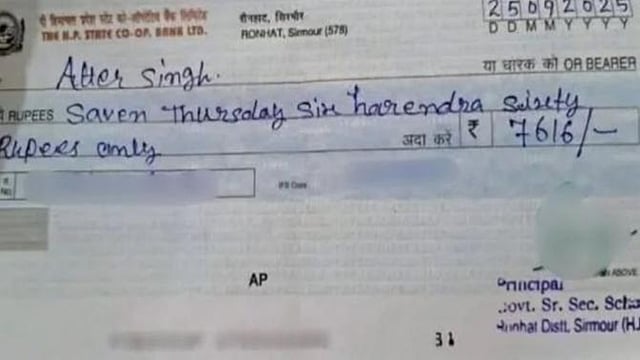 दी हिमाचल प्रदेश स्टेट को-ऑपरेटिव बैंक लिमिटेड
THE H.P. STATE CO-OP. BANK LTD.
रौनहाट, सिरमौर
RONHAT, Sirmour (578)
25092025
DDMMYYYY
Atter Singh.
या धारक को OR BEARER
RUPEES Saven Thursday Six harendra Sixty
Rupees only
अदा करें ₹ 7616/-
IFS Code
AP
ABOVE
Principal
Govt. Sr. Sec. Scho
Ronhat Distt. Sirmour (H.
31